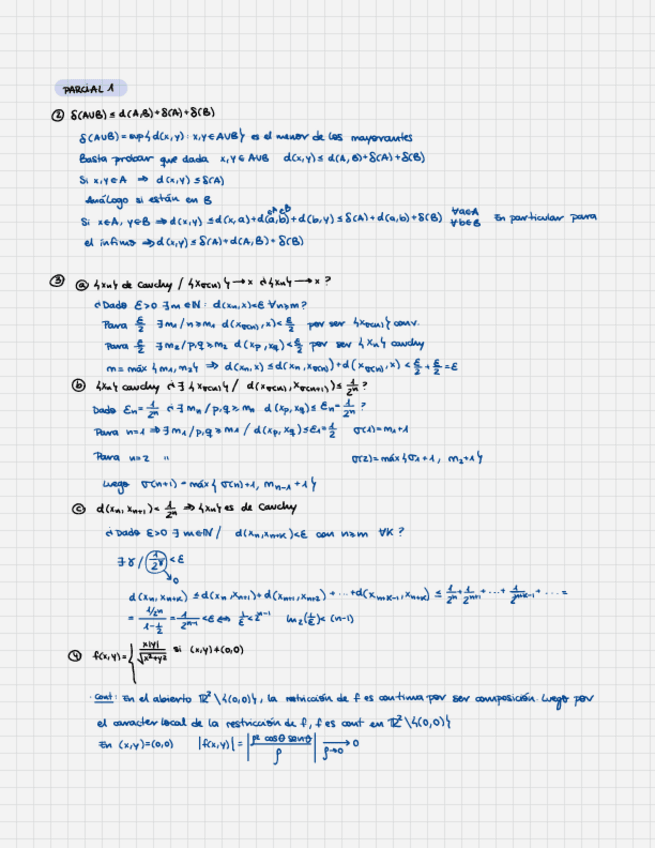 PARCIAL 1
② δ(A∪B) ≤ d(A,B)+δ(A)+δ(B)
δ(A∪B) = sup{d(x,y) : x,y ∈ A∪B} es el menor de los mayorantes
Basta probar que dada x,y ∈ A∪B d(x,y) ≤ d(A,B)+δ(A)+δ(B)
Si x,y ∈ A ⇒ d(x,y) ≤ δ(A)
Análogo si están en B
Si x∈A, y∈B ⇒ d(x,y) ≤ d(x,a)+d(a,b)+d(b,y) ≤ δ(A)+d(a,b)+δ(B) ∀a∈A ∀b∈B En particular para
el ínfimo ⇒ d(x,y) ≤ δ(A)+d(A,B)+δ(B)
③ ⓐ {xn} de Cauchy / {xσ(n)} → x ¿{xn} → x?
¿Dado ε>0 ∃m∈ℕ : d(xn,x)<ε ∀n≥m?
Para ε/2 ∃m1/n≥m1 d(xσ(n),x)<ε/2 por ser {xσ(n)} conv.
Para ε/2 ∃m2/p,q≥m2 d(xp,xq)<ε/2 por ser {xn} cauchy
m = máx{m1,m2} ⇒ d(xn,x) ≤ d(xn,xσ(n))+d(xσ(n),x) < ε/2+ε/2=ε
ⓑ {xn} cauchy ¿∃{xσ(n)} / d(xσ(n),xσ(n+1)) ≤ 1/2ⁿ?
Dado εn=1/2ⁿ ¿∃mn/p,q≥mn d(xp,xq) ≤ εn=1/2ⁿ?
Para n=1 ⇒ ∃m1/p,q≥m1 / d(xp,xq) ≤ ε1=1/2 σ(1)=m1+1
Para n=2 " σ(2)=máx{σ1+1, m2+1}
Luego σ(n+1) = máx{σ(n)+1, mn-1+1}
ⓒ d(xn,xn+1) < 1/2ⁿ ⇒ {xn} es de Cauchy
¿Dado ε>0 ∃m∈ℕ / d(xn,xn+k)<ε con n≥m ∀k?
∃γ / 1/2^γ < ε
→0
d(xn,xn+k) ≤ d(xn,xn+1)+d(xn+1,xn+2)+...+d(xn+k-1,xn+k) ≤ 1/2ⁿ+1/2ⁿ⁺¹+...+1/2ⁿ⁺ᵏ⁻¹+...=
= (1/2ⁿ)/(1-1/2) = 1/2ⁿ⁻¹ < ε ⇔ 1/ε < 2ⁿ⁻¹ ln2(1/ε) < (n-1)
④ f(x,y) = { x|y|/√(x²+y²) si (x,y)≠(0,0)
· Cont: En el abierto ℝ²\{(0,0)}, la restricción de f es continua por ser composición. Luego por
el caracter local de la restricción de f, f es cont en ℝ²\{(0,0)}
En (x,y)=(0,0) |f(x,y)| = |ρ² cosθ senθ / ρ| →ρ→0 0